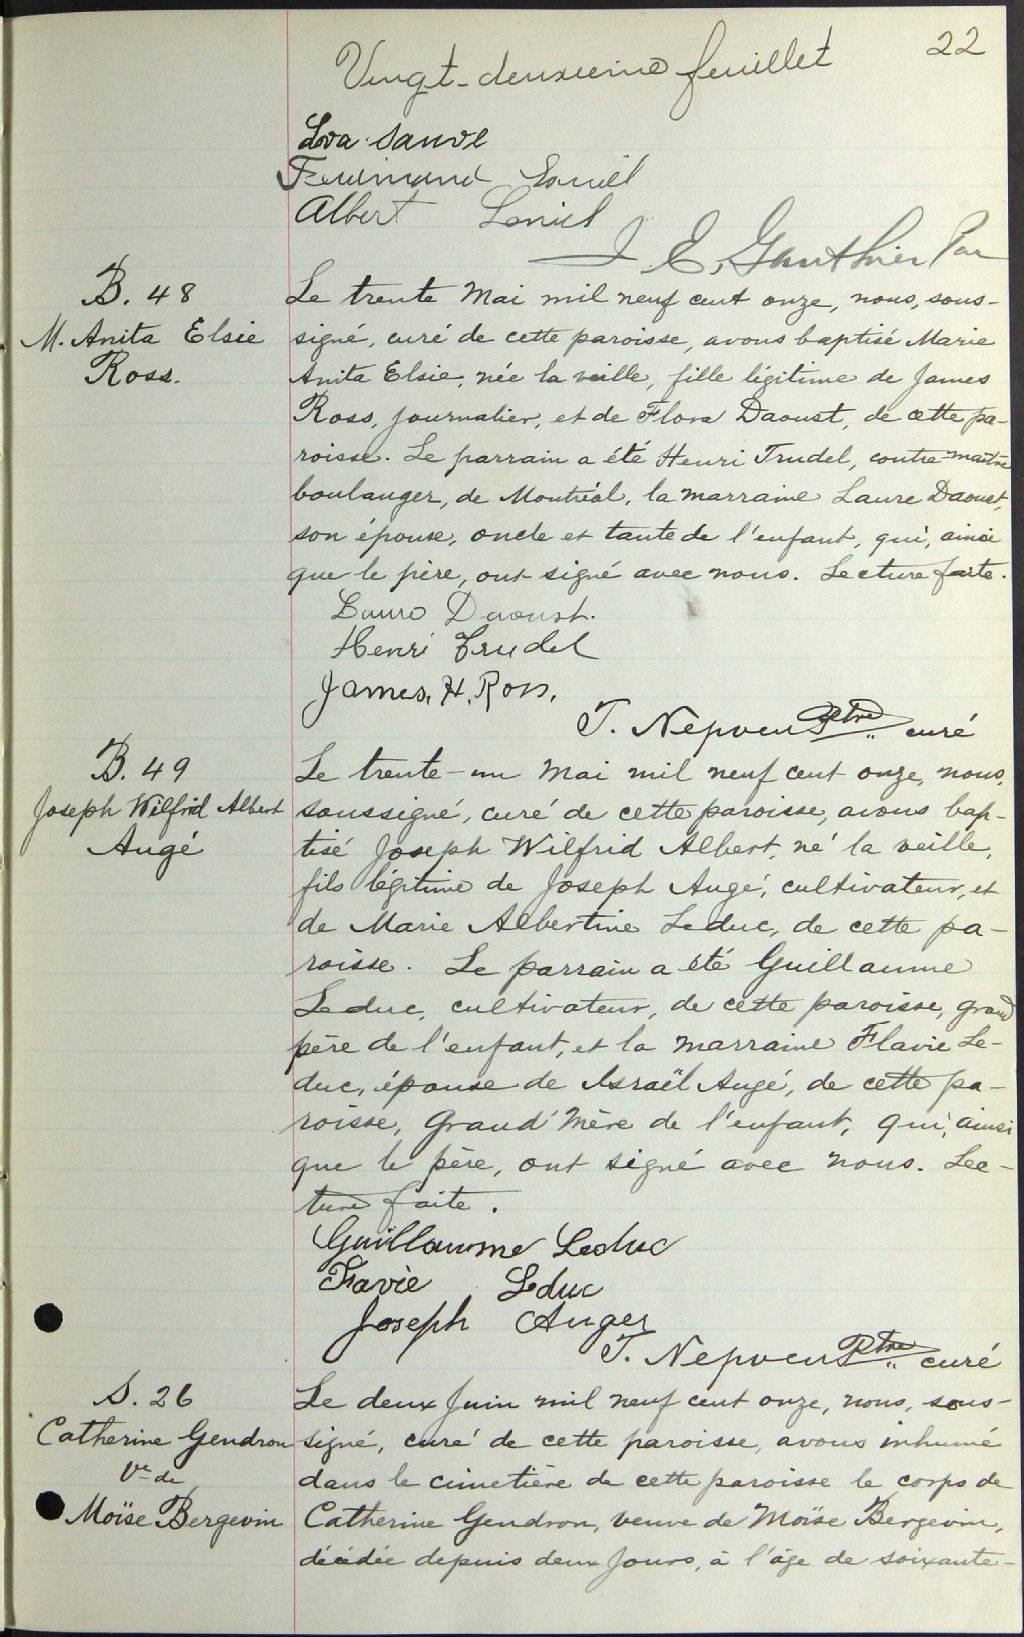 22
Vingt-deuxième feuillet
Eva Sauvé
Ferdinand
Albert
J E. Gauthier Ptre
B. 48
M. Anita Elsie
Ross.
Le trente Mai mil neuf cent onze, nous, sous-
signé, curé de cette paroisse, avons baptisé Marie
Anita Elsie, née la veille, fille légitime de James
Ross, journalier, et de Flora Daoust, de cette pa-
roisse. Le parrain a été Henri Trudel, contre-maître
boulanger, de Montréal, la marraine Laure Daoust,
son épouse, oncle et tante de l'enfant, qui, ainsi
que le père, ont signé avec nous. Lecture faite.
Laure Daoust.
Henri Trudel
James. H. Ross.
T. Nepveu Ptre curé
B. 49
Joseph Wilfrid Albert
Augé
Le trente-un Mai mil neuf cent onze, nous,
soussigné, curé de cette paroisse, avons bap-
tisé Joseph Wilfrid Albert, né la veille,
fils légitime de Joseph Augé, cultivateur, et
de Marie Albertine Leduc, de cette pa-
roisse. Le parrain a été Guillaume
Leduc, cultivateur, de cette paroisse, grand
père de l'enfant, et la marraine Flavie Le-
duc, épouse de Israël Augé, de cette pa-
roisse, Grand'Mère de l'enfant, qui, ainsi
que le père, ont signé avec nous. Lec-
ture faite.
Guillaume Leduc
Flavie Leduc
Joseph Auger
T. Nepveu Ptre curé
S. 26
Catherine Gendron
Ve de
Moïse Bergevin
Le deux Juin mil neuf cent onze, nous, sous-
signé, curé de cette paroisse, avons inhumé
dans le cimetière de cette paroisse le corps de
Catherine Gendron, veuve de Moïse Bergevin,
décédée depuis deux jours, à l'âge de soixante-